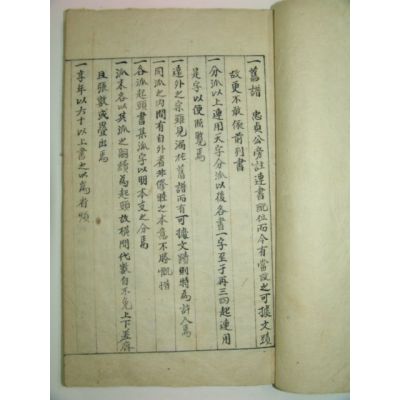 一舊譜 忠貞公旁註連書院位而今有當設之可據文蹟
故更不敢依前列書
一分派以上連用天字分派以後各書一字至于再三四起連用
是字以便照覽焉
一遠外之宗雖見漏於舊譜而有可據文蹟則特爲許入焉
一同派之內間有自外者非修譜之本意不勝慨惜
一各派起頭書某派字以明本支之分焉
一派末各以其派之嗣續爲起頭故横間代數自不免上下差
且張數或疊出焉
一享年以六十以上書之以爲